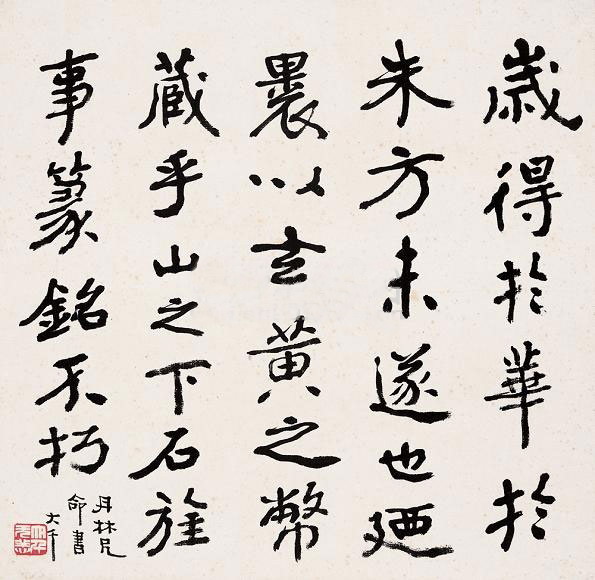 歲得於華於
朱方未遂也廼
裹以玄黃之幣
藏乎山之下石旌
事篆銘不朽
丹林兄
命書
大千